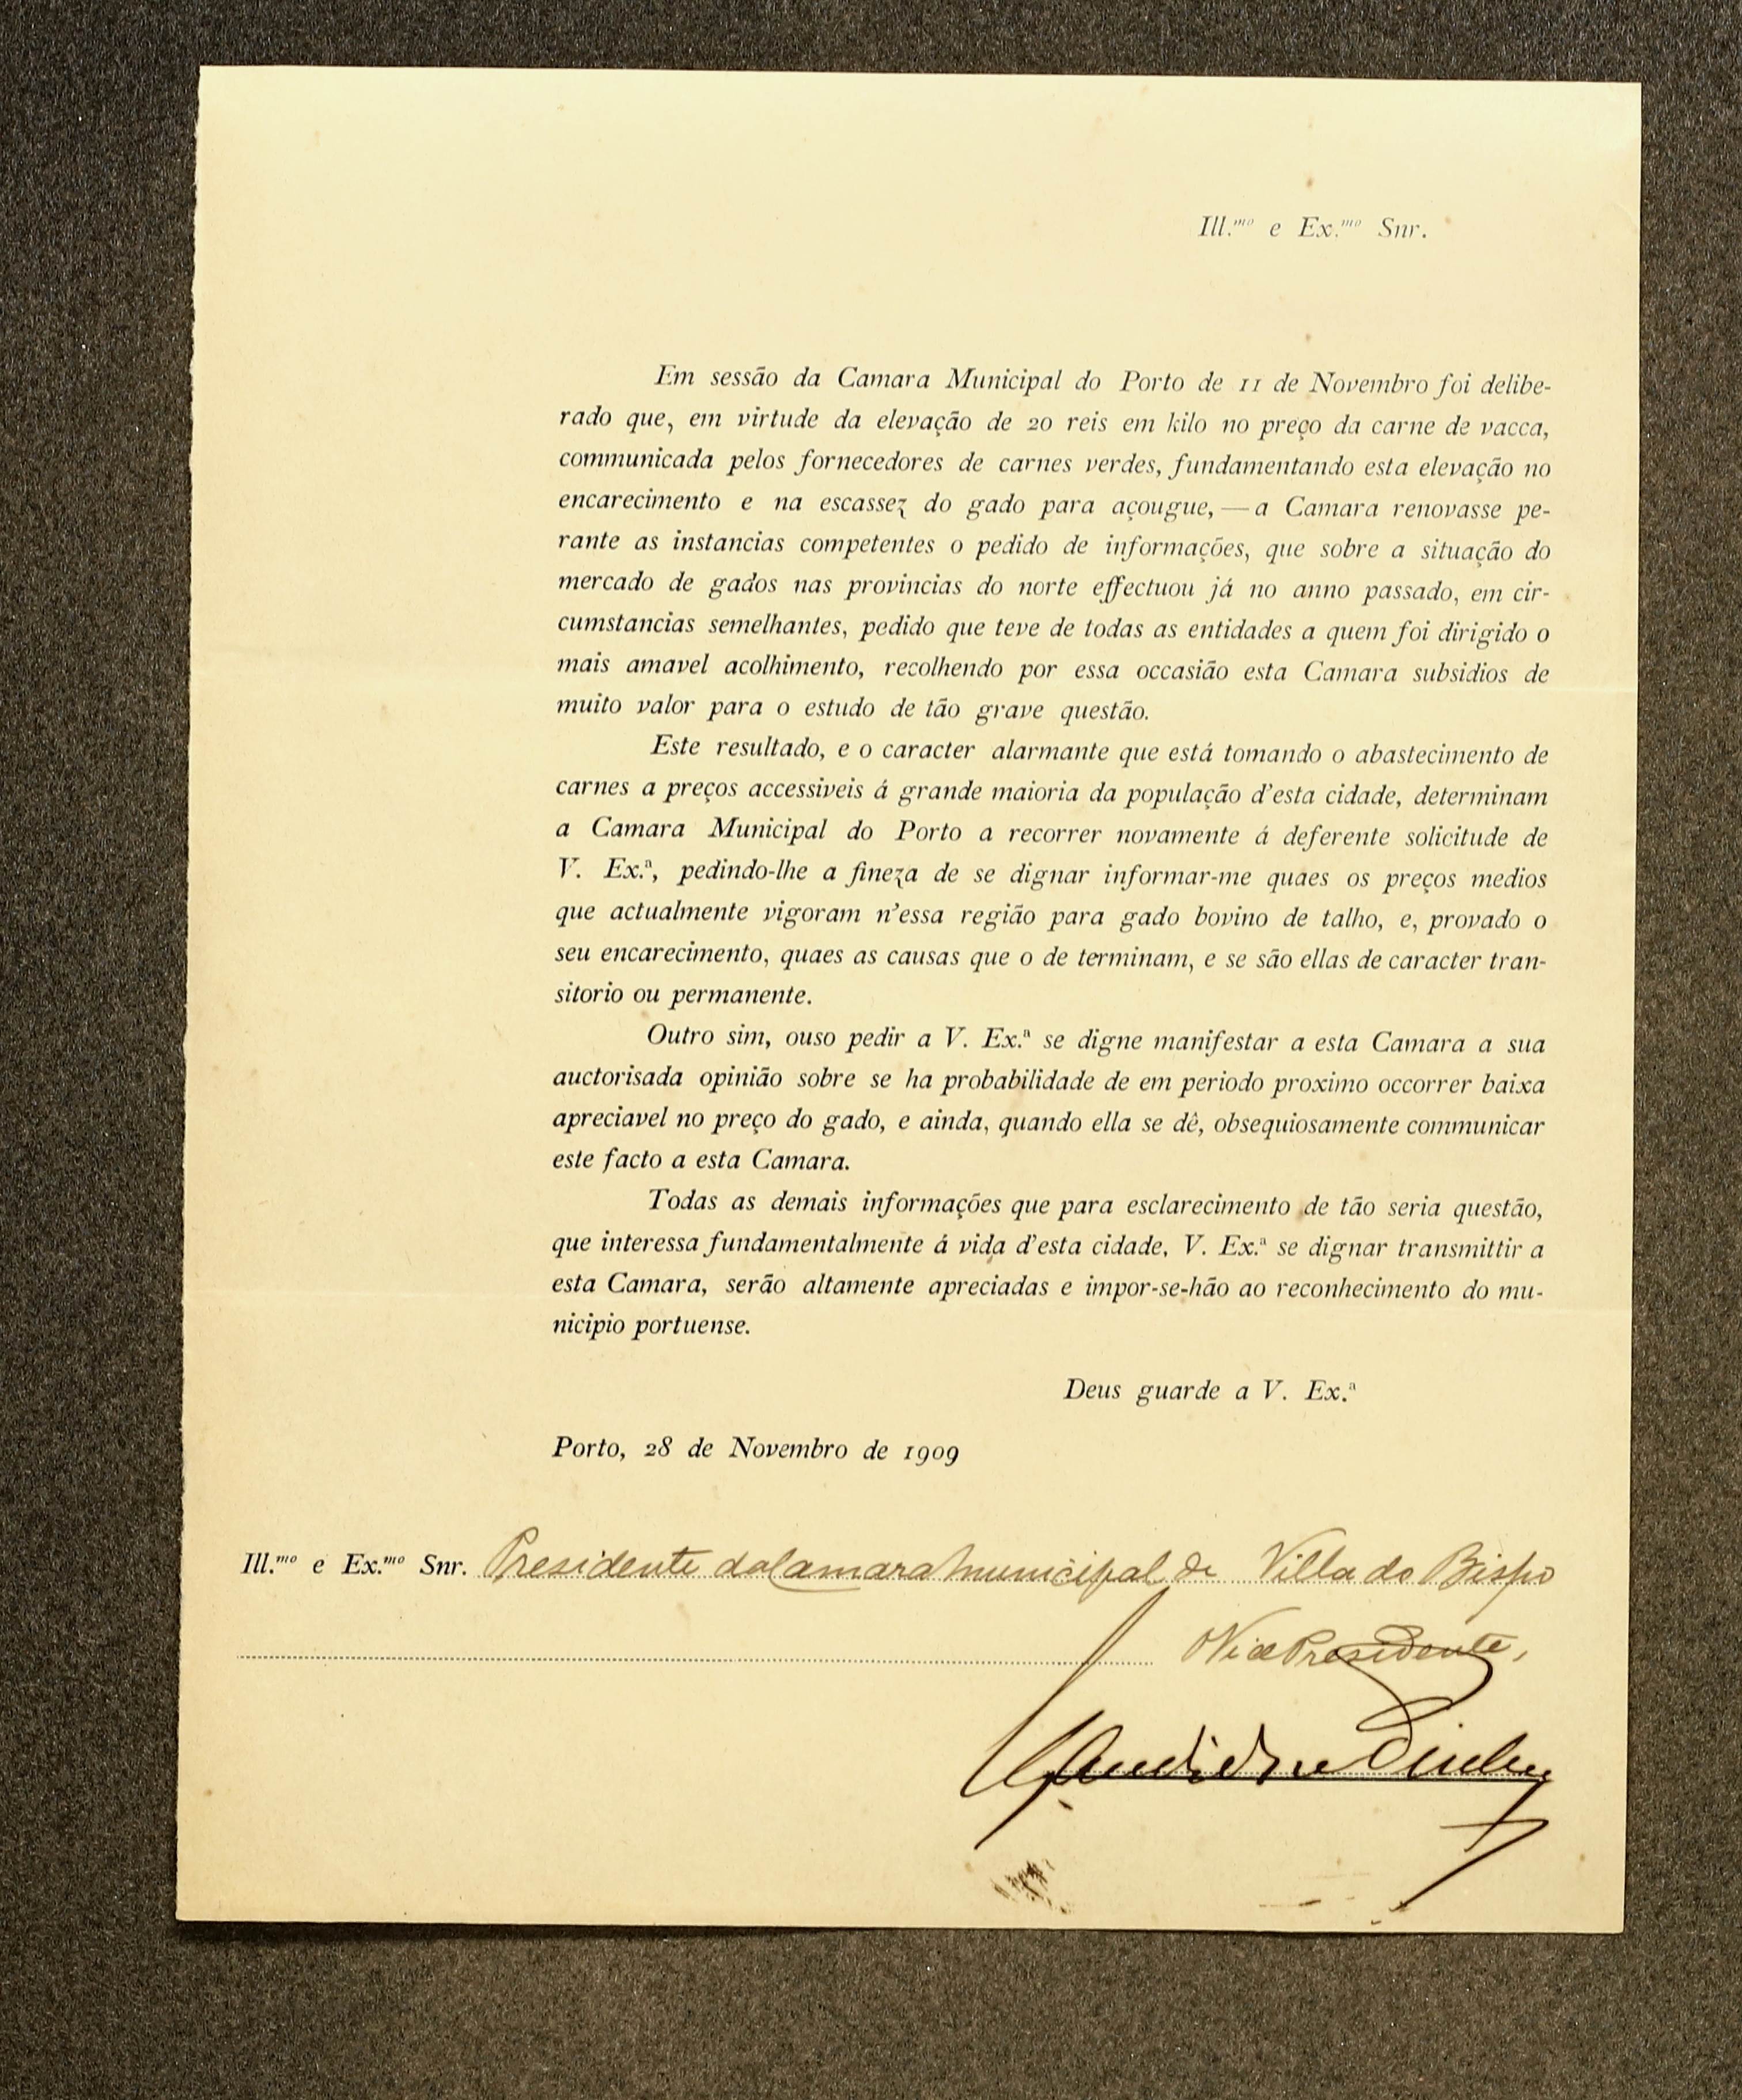 Ill.mo e Ex.mo Snr.
Em sessão da Camara Municipal do Porto de 11 de Novembro foi delibe-
rado que, em virtude da elevação de 20 reis em kilo no preço da carne de vacca,
communicada pelos fornecedores de carnes verdes, fundamentando esta elevação no
encarecimento e na escassez do gado para açougue, — a Camara renovasse pe-
rante as instancias competentes o pedido de informações, que sobre a situação do
mercado de gados nas provincias do norte effectuou já no anno passado, em cir-
cumstancias semelhantes, pedido que teve de todas as entidades a quem foi dirigido o
mais amavel acolhimento, recolhendo por essa occasião esta Camara subsidios de
muito valor para o estudo de tão grave questão.
Este resultado, e o caracter alarmante que está tomando o abastecimento de
carnes a preços accessiveis á grande maioria da população d'esta cidade, determinam
a Camara Municipal do Porto a recorrer novamente á deferente solicitude de
V. Ex.ª, pedindo-lhe a fineza de se dignar informar-me quaes os preços medios
que actualmente vigoram n'essa região para gado bovino de talho, e, provado o
seu encarecimento, quaes as causas que o de terminam, e se são ellas de caracter tran-
sitorio ou permanente.
Outro sim, ouso pedir a V. Ex.ª se digne manifestar a esta Camara a sua
auctorisada opinião sobre se ha probabilidade de em periodo proximo occorrer baixa
apreciavel no preço do gado, e ainda, quando ella se dê, obsequiosamente communicar
este facto a esta Camara.
Todas as demais informações que para esclarecimento de tão seria questão,
que interessa fundamentalmente á vida d'esta cidade, V. Ex.ª se dignar transmittir a
esta Camara, serão altamente apreciadas e impor-se-hão ao reconhecimento do mu-
nicipio portuense.
Deus guarde a V. Ex.ª
Porto, 28 de Novembro de 1909
Ill.mo e Ex.mo Snr. Presidente da Camara Municipal de Villa do Bispo
O Vice Presidente,